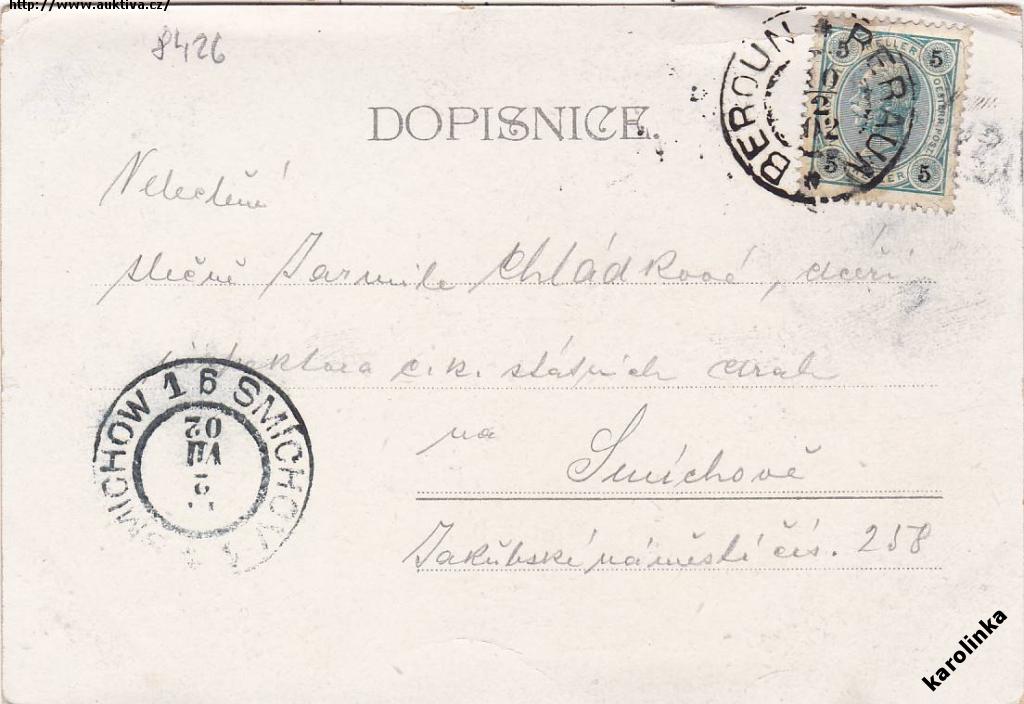 http://www.auktiva.cz/
8426
DOPISNICE.
BEROUN BERAUN
2
02
5 HELLER 5
OESTERR. POST
5 HELLER 5
Velectěné
slečně Jarmile Chládkové, dceři
c. k. státních drah
na
Smíchově
SMICHOW 1 SMICHOV 1
VII
02
Jakubské náměstí čís. 258
karolinka